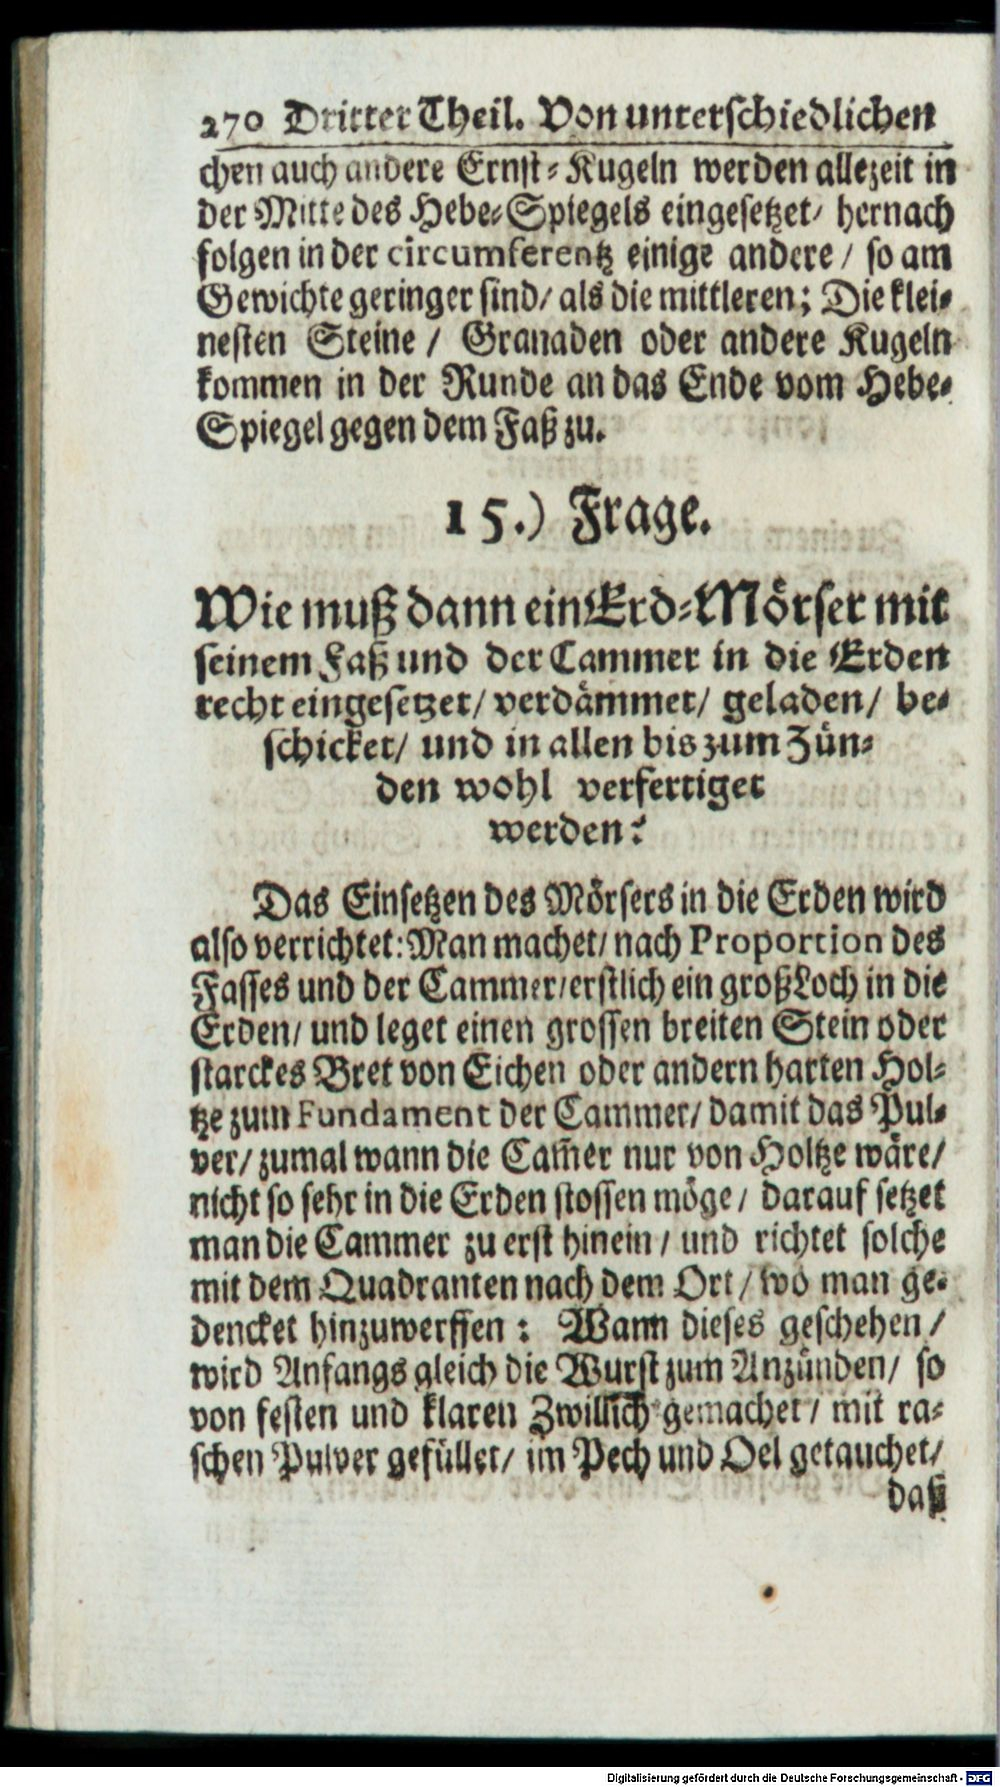 270 Dritter Theil. Von unterschiedlichen
chen auch andere Ernst-Kugeln werden allezeit in
der Mitte des Hebe-Spiegels eingesetzet/ hernach
folgen in der circumferentz einige andere / so am
Gewichte geringer sind/ als die mittleren; Die klei-
nesten Steine / Granaden oder andere Kugeln
kommen in der Runde an das Ende vom Hebe-
Spiegel gegen dem Faß zu.
15.) Frage.
Wie muß dann ein Erd-Mörser mit
seinem Faß und der Cammer in die Erden
recht eingesetzet/ verdämmet/ geladen/ be-
schicket/ und in allen bis zum Zün-
den wohl verfertiget
werden?
Das Einsetzen des Mörsers in die Erden wird
also verrichtet: Man machet/ nach Proportion des
Fasses und der Cammer/ erstlich ein groß Loch in die
Erden/ und leget einen grossen breiten Stein oder
starckes Bret von Eichen oder andern harten Hol-
tze zum Fundament der Cammer/ damit das Pul-
ver/ zumal wann die Cam̃er nur von Holtze wäre/
nicht so sehr in die Erden stossen möge/ darauf setzet
man die Cammer zu erst hinein / und richtet solche
mit dem Quadranten nach dem Ort/ wo man ge-
dencket hinzuwerffen: Wann dieses geschehen/
wird Anfangs gleich die Wurst zum Anzünden/ so
von festen und klaren Zwillich gemachet/ mit ra-
schen Pulver gefüllet/ im Pech und Oel getauchet/
daß
Digitalisierung gefördert durch die Deutsche Forschungsgemeinschaft - DFG